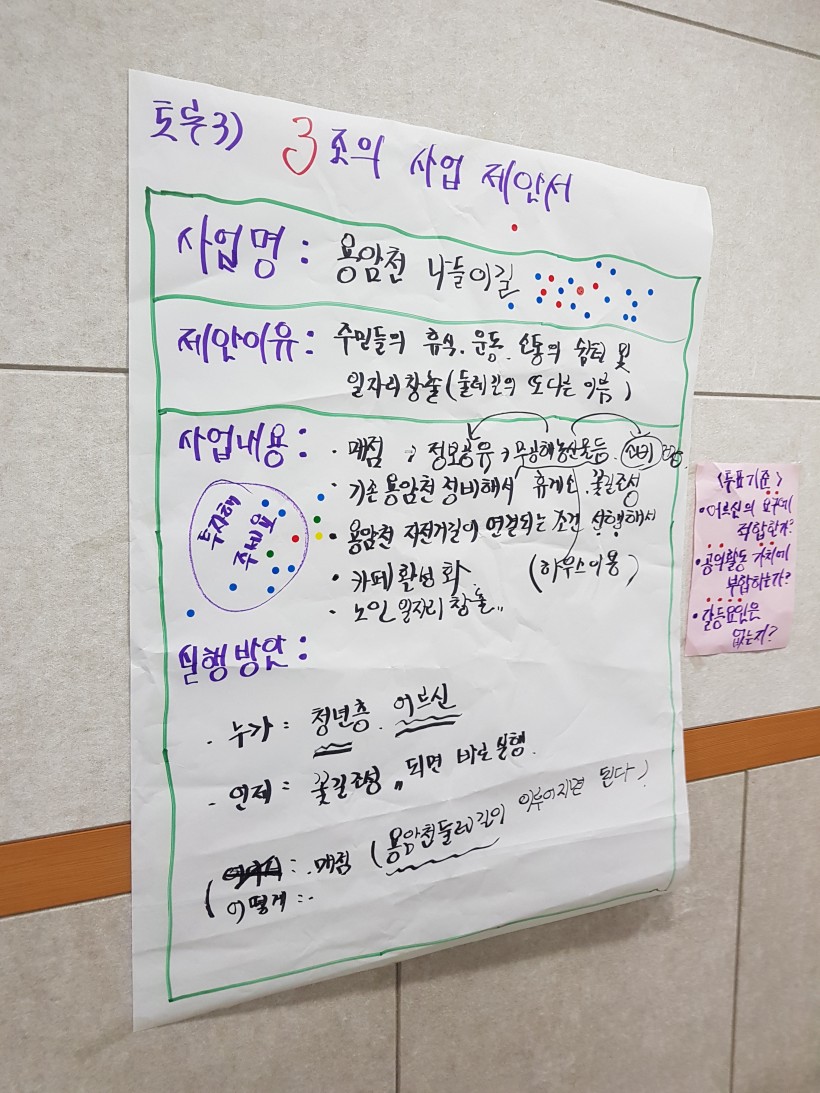 토론3) 3조의 사업 제안서
사업명 : 용암천 나들이길
제안이유 : 주민들의 휴식. 운동. 소통의 쉼터 및
일자리창출 (둘레길의 또다른 이름)
사업내용 : · 매점 → 정보공유 → 무공해농산물등.
· 기존 용암천 정비해서 휴게소. 꽃길조성
· 용암천 자전거길이 연결되는 조건 선행해서
· 카페 활성화 (하우스이용)
· 노인 일자리 창출"
투자해
주세요
실행방안 :
· 누가 : 청년층. 어르신
· 언제 : 꽃길조성 " 되면 바로 실행.
: 매점 (용암천둘레길이 이루어지면 된다)
(어떻게 :-
<투표기준>
· 어르신의 요구에
적합한가?
· 공익활동 가치에
부합하는가?
· 갈등요인은
없는가?